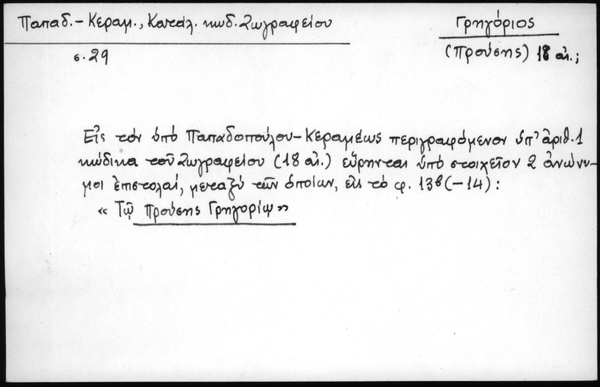 Παπαδ.-Κεραμ., Καταλ. κωδ. Ζωγραφείου
σ. 29
Γρηγόριος
(Προύσης) 18 αἰ.;
Εἰς τὸν ὑπὸ Παπαδοπούλου-Κεραμέως περιγραφόμενον ὑπ' ἀριθ. 1
κώδικα τοῦ Ζωγραφείου (18 αἰ.) εὕρηνται ὑπὸ στοιχεῖον 2 ἀνώνυ-
μοι ἐπιστολαί, μεταξὺ τῶν ὁποίων, εἰς τὸ φ. 13β (-14):
« Τῷ Προύσης Γρηγορίῳ »